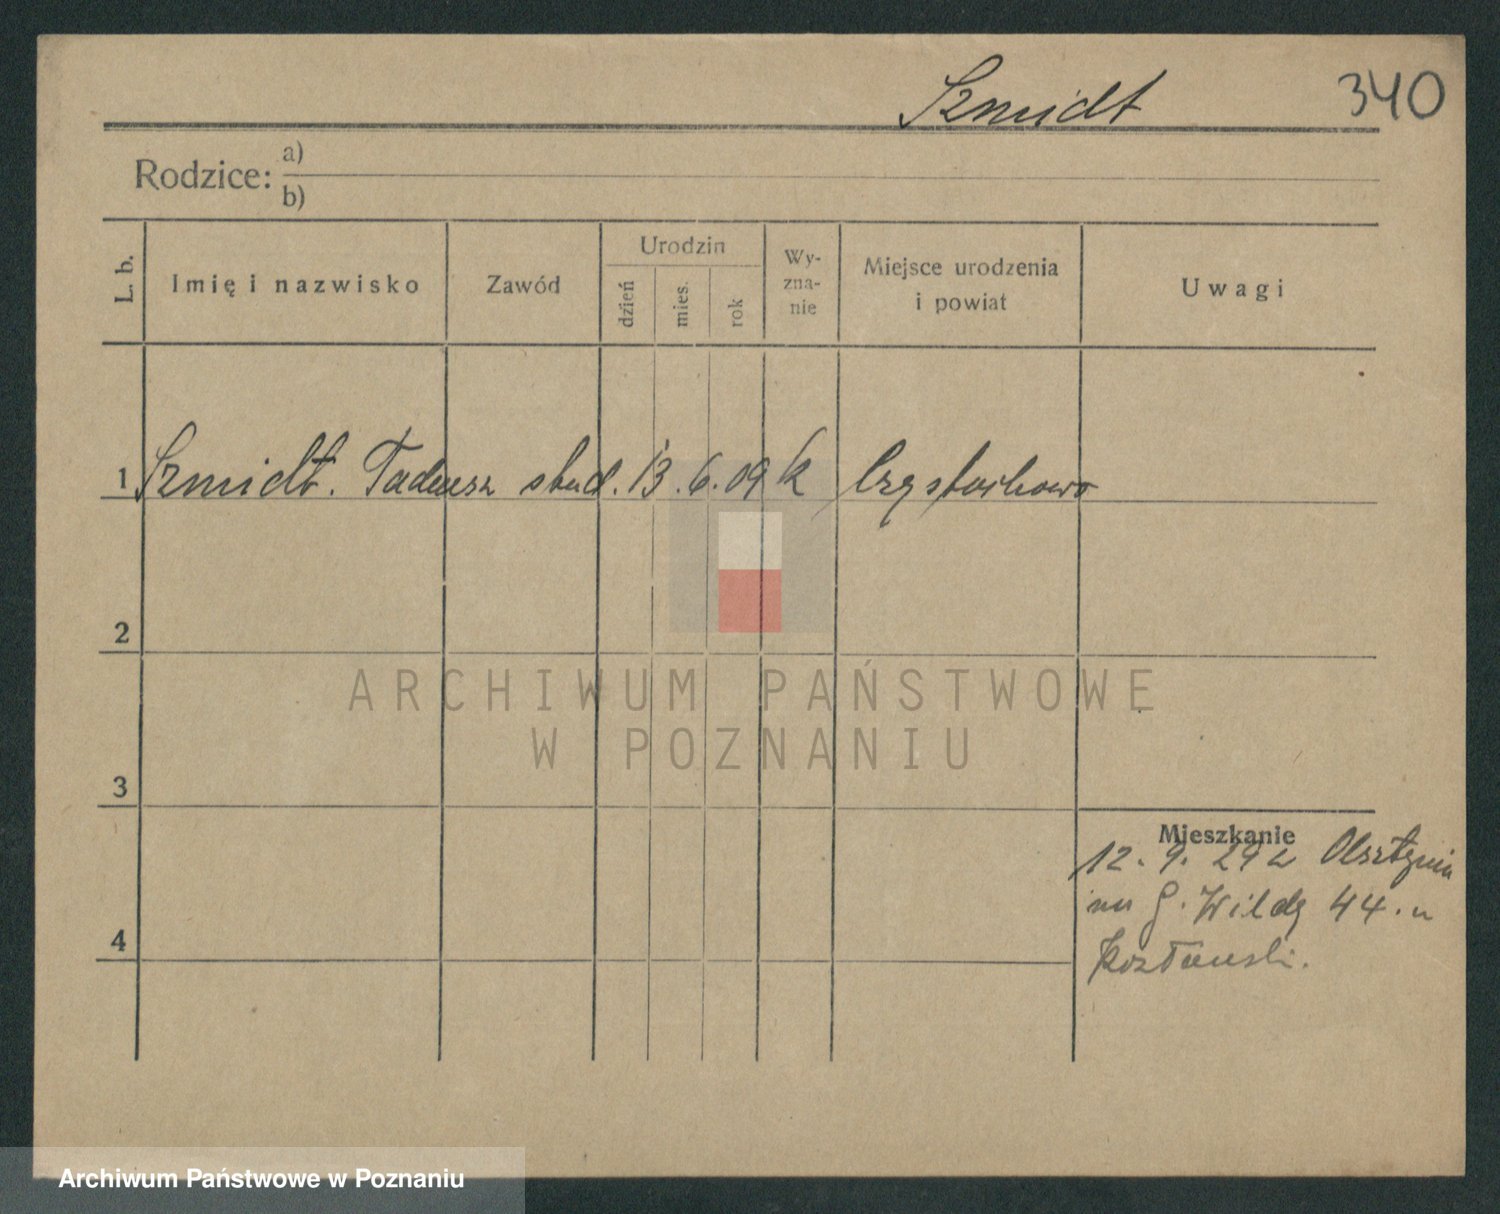 Szmidt 340
Rodzice: a)
b)
L. b.
Imię i nazwisko
Zawód
Urodzin
dzień
mies.
rok
Wy-
zna-
nie
Miejsce urodzenia
i powiat
Uwagi
1 Szmidt. Tadeusz stud. 13. 6. 09 k Częstochowa
2
3
4
Mieszkanie
12. 9. 29 z
G. Wildę 44. u
ARCHIWUM PAŃSTWOWE
W POZNANIU
Archiwum Państwowe w Poznaniu